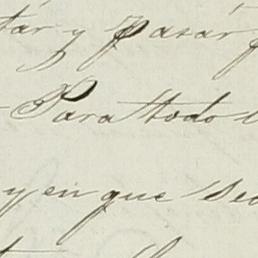 tár y pasár
Para todo
y en que se